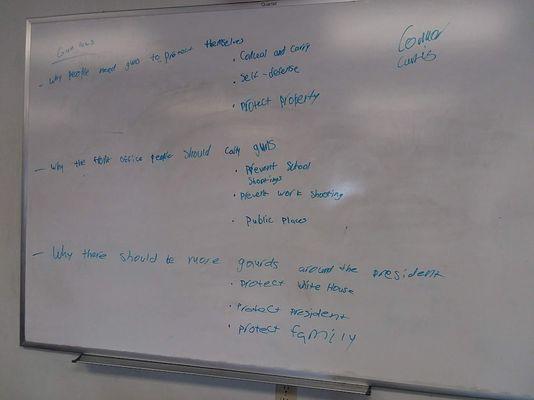 Quartet
Gun laws
- Why people need guns to protect themselves
• Conceal and carry
• Self-defense
• Protect property
- Why the front office people should carry guns
• Prevent School
Shootings
• Prevent work shooting
• Public Places
- Why there should be more gaurds around the president
• Protect White House
• Protect president
• Protect family
Connor
Curtis